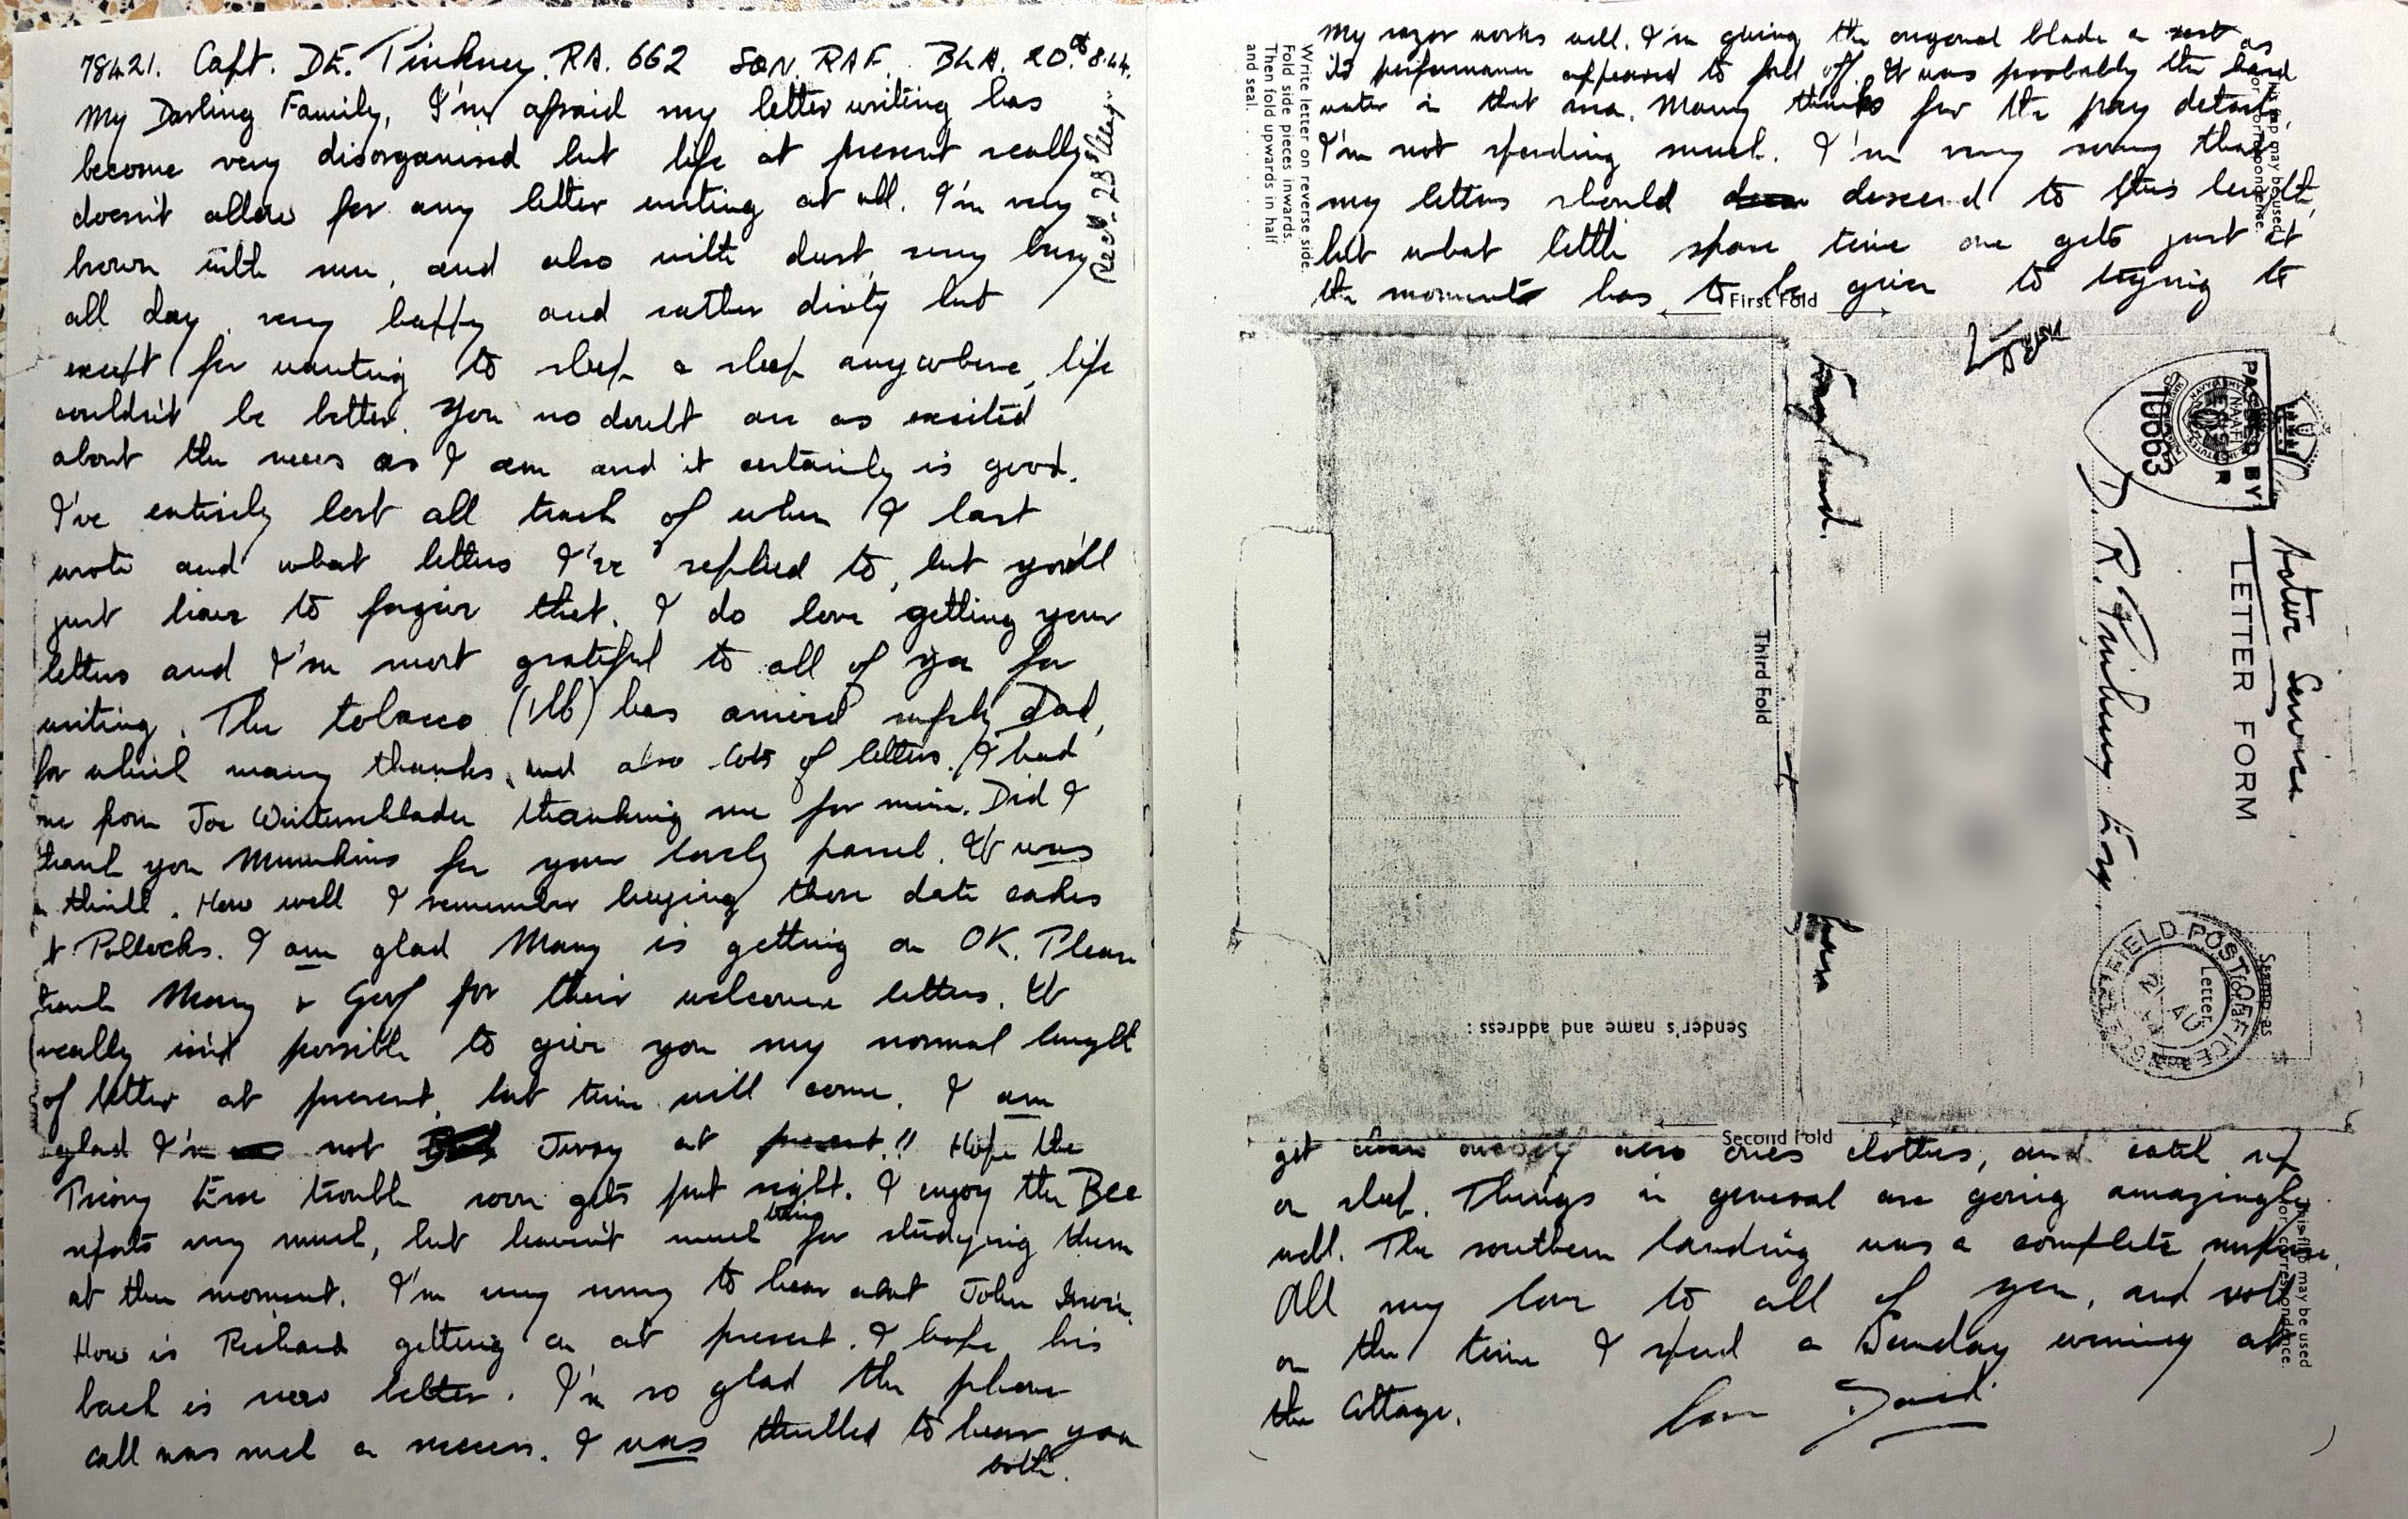 78421. Capt. D.E. Pinkney. R.A. 662 SQN. RAF. BLA. 20th 8.44.
My Darling Family, I'm afraid my letter writing has
become very disorganised but life at present really
doesn't allow for any letter writing at all. I'm very
brown with sun, and also with dust, very busy
all day, very happy and rather dirty but
except for wanting to sleep a sleep anywhere, life
couldn't be better. You no doubt are as excited
about the news as I am and it certainly is good.
I've entirely lost all track of when I last
wrote and what letters I've replied to, but you'll
just have to forgive that. I do love getting your
letters and I'm most grateful to all of you for
writing. The tobacco (1lb) has arrived safely Dad,
for which many thanks, and also lots of letters. I had
one from Joe thanking me for mine. Did I
thank you Mumkins for your lovely parcel. It was
a thrill. How well I remember buying those date cakes
at Pollocks. I am glad Mary is getting on OK. Please
thank Mary & Geof for their welcome letters. It
really isn't possible to give you my normal length
of letter at present, but time will come. I am
glad I'm not Jerry at present!! Hope the
Priory Ewe trouble soon gets put right. I enjoy the Bee
reports very much, but haven't much time for studying them
at the moment. I'm very sorry to hear about John Irwin.
How is Richard getting on at present. I hope his
back is now better. I'm so glad the phone
call was such a success. I was thrilled to hear you
both.
Recd. 28th Aug
My razor works well. I'm giving the original blade a rest as
its performance appeared to fall off. It was probably the hard
water in that area. Many thanks for the pay details,
I'm not spending much. I'm very sorry that
my letters should descend to this length,
but what little spare time one gets just at
the moment has to be given to trying to
Write letter on reverse side.
Fold side pieces inwards.
Then fold upwards in half
and seal.
This flap may be used
for correspondence.
First Fold
England.
PASSED BY
CENSOR
10663
NAAFI
Active Service
LETTER FORM
D. R. Pinkney Esq.
Third Fold
Stamp as
for
Letter
FIELD POST OFFICE
21 AU
Sender's name and address :
Second Fold
get clean oneself and ones clothes, and catch up
on sleep. Things in general are going amazingly
well. The southern landing was a complete surprise.
All my love to all of you, and roll
on the time I spend a Sunday evening at
the Cottage.
Love David.
This flap may be used
for correspondence.